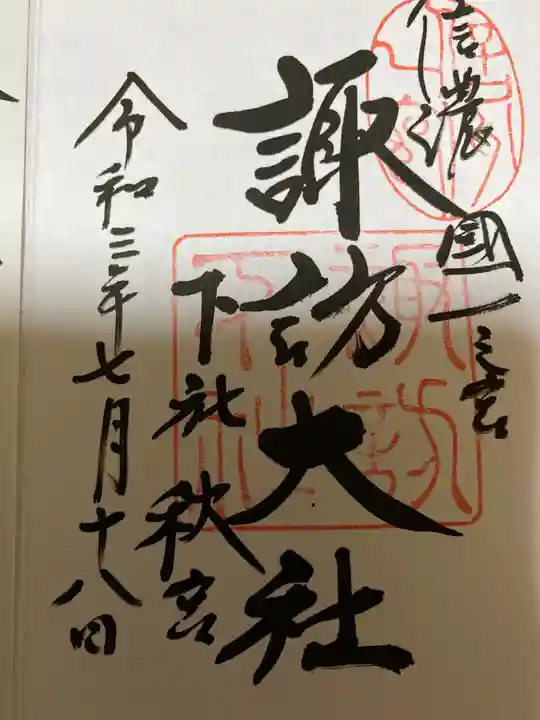 信濃國一之宮
諏訪大社
下社秋宮
令和三年七月十八日